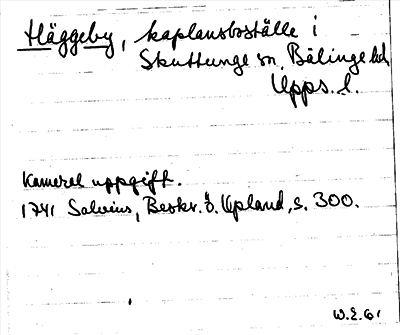 Häggeby, kaplansboställe i
Skuttunge sn, Bälinge hd,
Upps. l.
Kameral uppgift.
1741 Salvius, Beskr. ö. Upland, s. 300.
W.E. 61